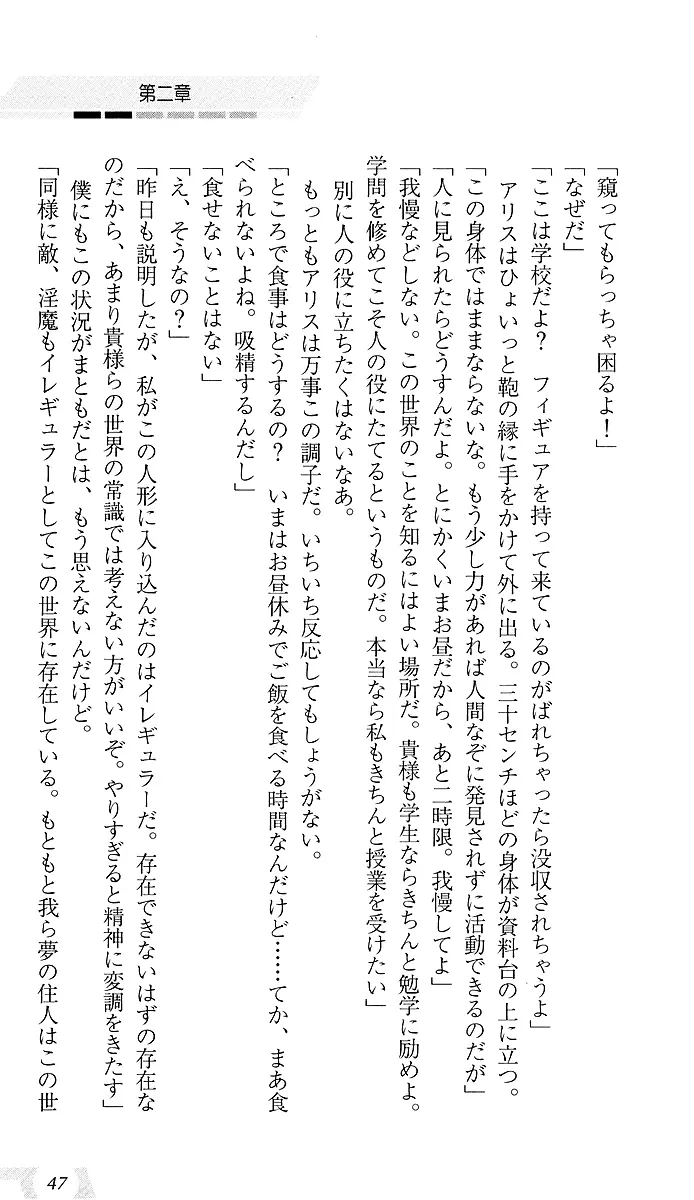 第二章
「窺ってもらっちゃ困るよ！」
「なぜだ」
「ここは学校だよ？　フィギュアを持って来ているのがばれちゃったら没収されちゃうよ」
アリスはひょいっと鞄の縁に手をかけて外に出る。三十センチほどの身体が資料台の上に立つ。
「この身体ではままならないな。もう少し力があれば人間なぞに発見されずに活動できるのだが」
「人に見られたらどうすんだよ。とにかくいまお昼だから、あと二時限。我慢してよ」
「我慢などしない。この世界のことを知るにはよい場所だ。貴様も学生ならきちんと勉学に励めよ。
学問を修めてこそ人の役にたてるというものだ。本当なら私もきちんと授業を受けたい」
別に人の役に立ちたくはないなあ。
もっともアリスは万事この調子だ。いちいち反応してもしょうがない。
「ところで食事はどうするの？　いまはお昼休みでご飯を食べる時間なんだけど……てか、まあ食
べられないよね。吸精するんだし」
「食せないことはない」
「え、そうなの？」
「昨日も説明したが、私がこの人形に入り込んだのはイレギュラーだ。存在できないはずの存在な
のだから、あまり貴様らの世界の常識では考えない方がいいぞ。やりすぎると精神に変調をきたす」
僕にもこの状況がまともだとは、もう思えないんだけど。
「同様に敵、淫魔もイレギュラーとしてこの世界に存在している。もともと我ら夢の住人はこの世
47